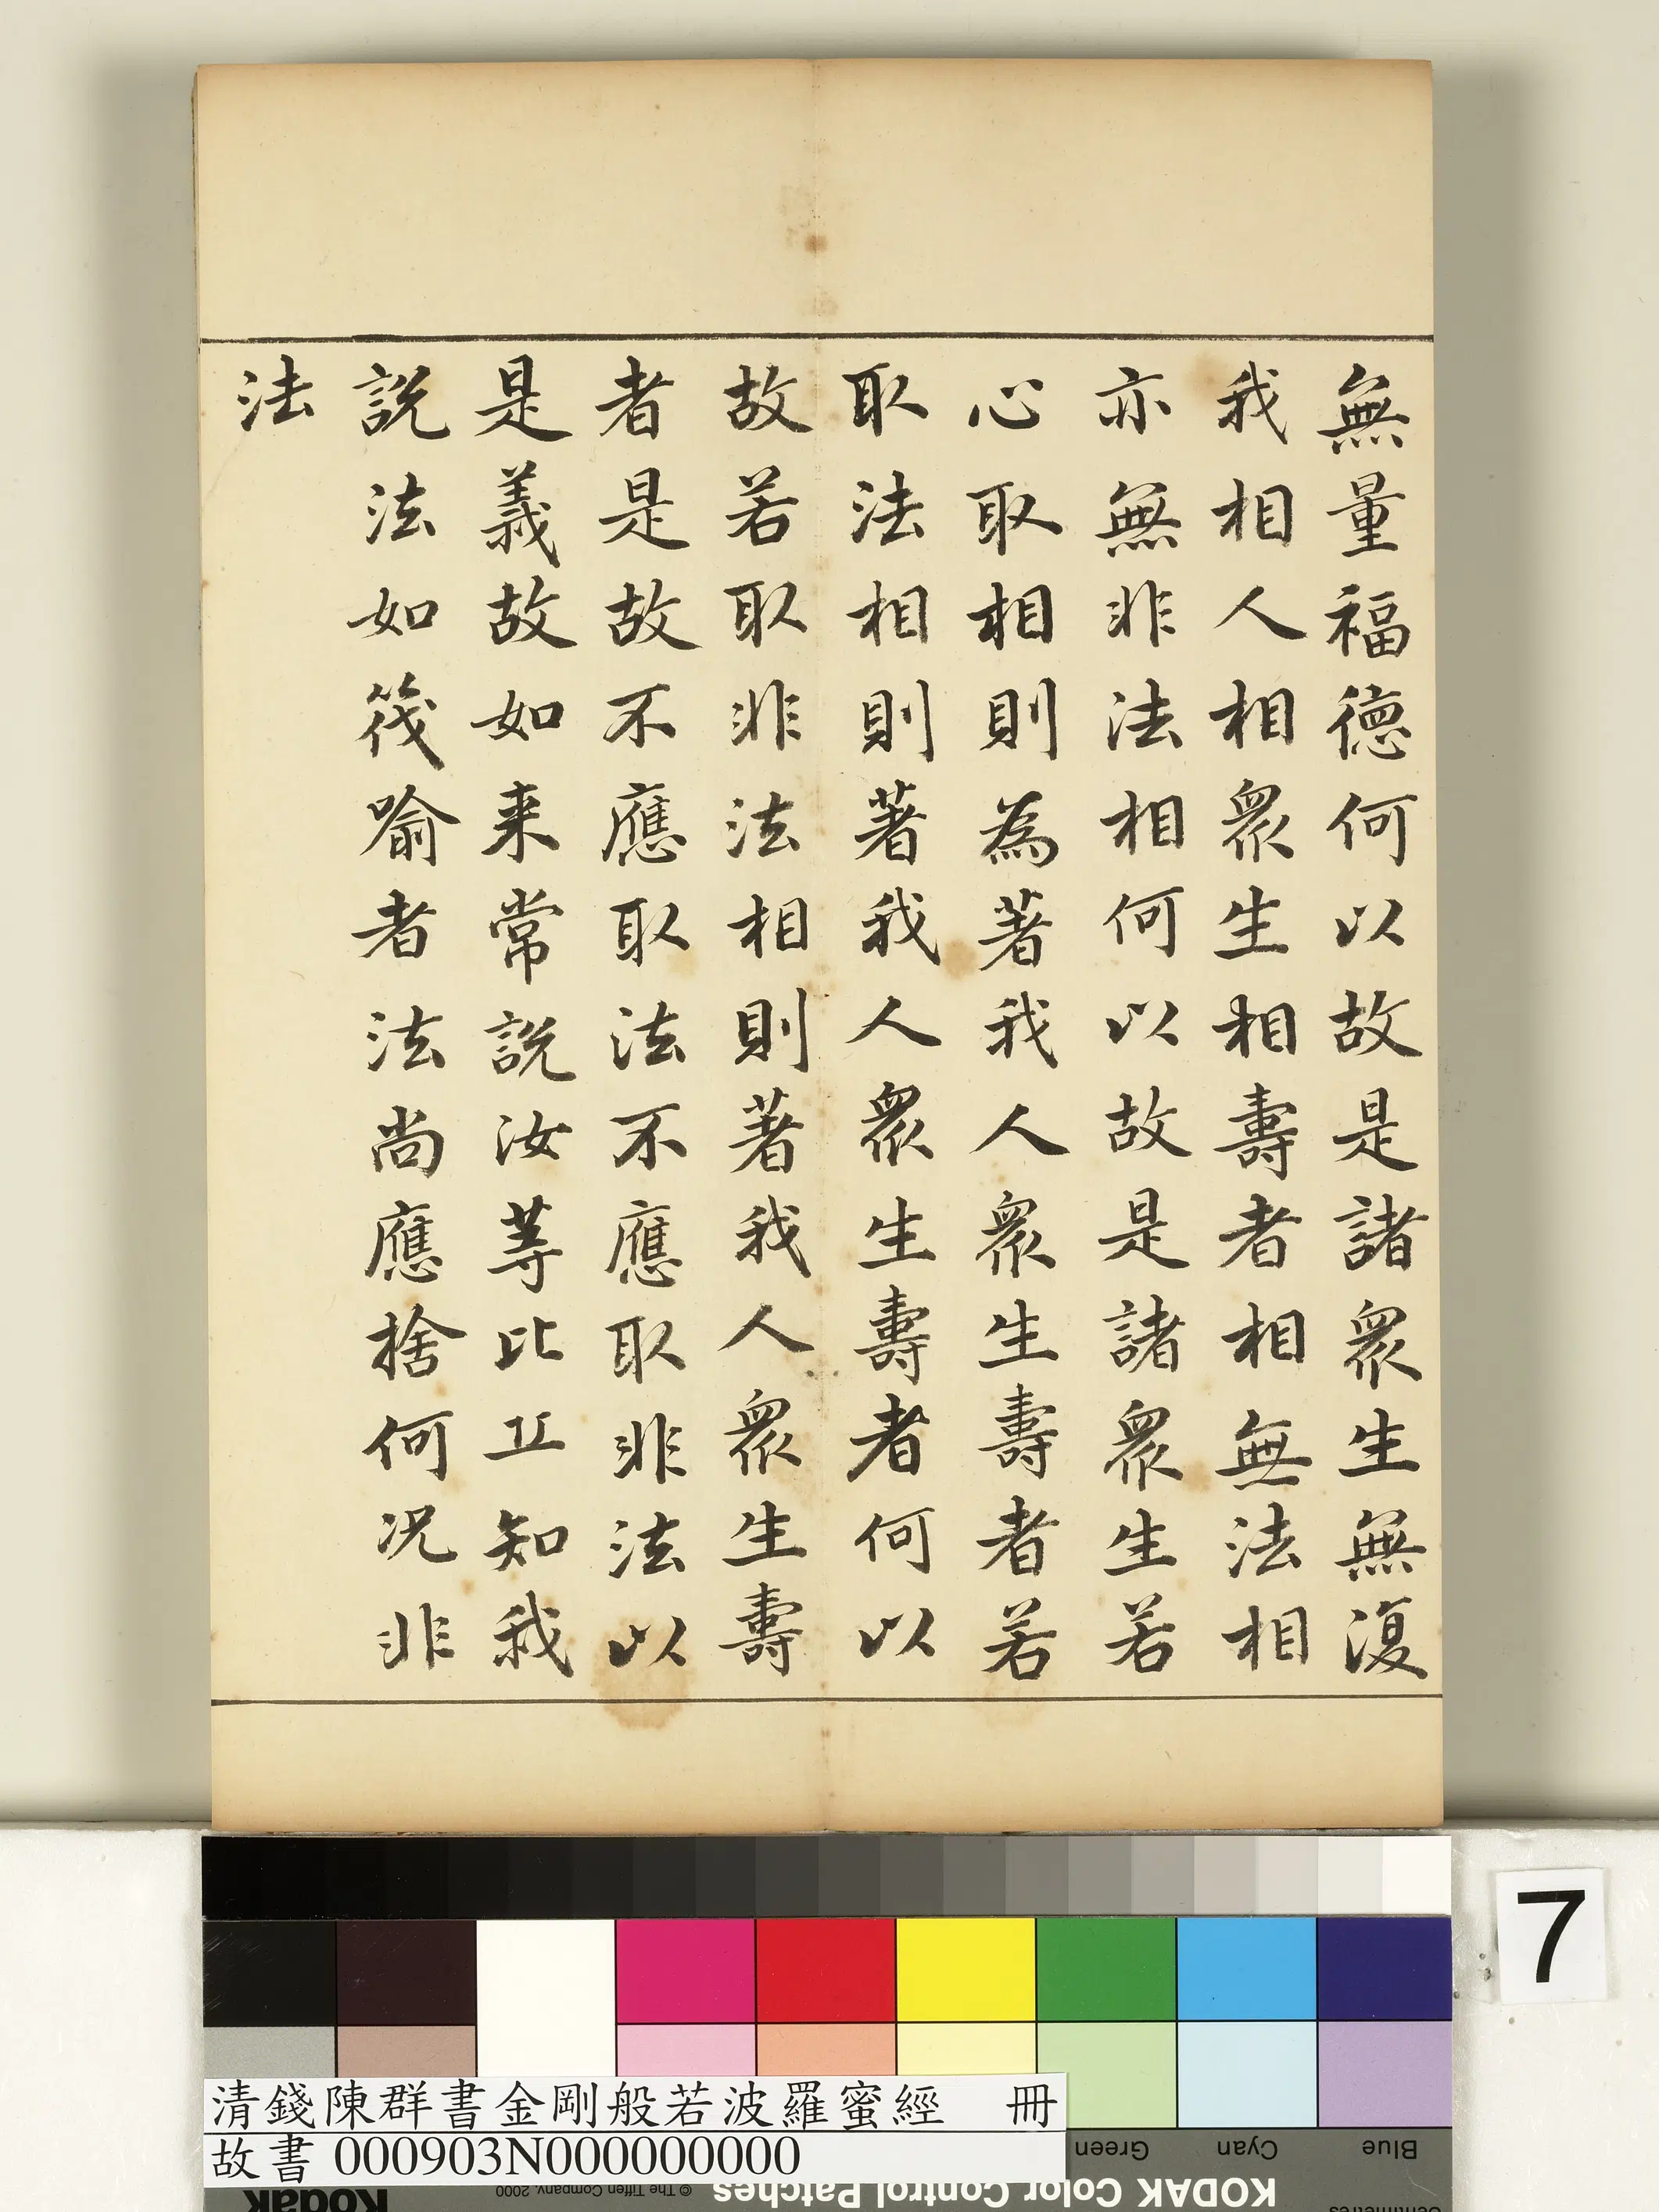 無量福德何以故是諸衆生無復
我相人相衆生相壽者相無法相
亦無非法相何以故是諸衆生若
心取相則為著我人衆生壽者若
取法相則著我人衆生壽者何以
故若取非法相則著我人衆生壽
者是故不應取法不應取非法以
是義故如来常說汝等比丘知我
說法如筏喻者法尚應捨何况非
法
7
清錢陳群書金剛般若波羅蜜經 冊
故書 000903N000000000
Green Cyan Blue
Kodak © The Tiffen Company, 2000 KODAK Color Control Patches Centimetres